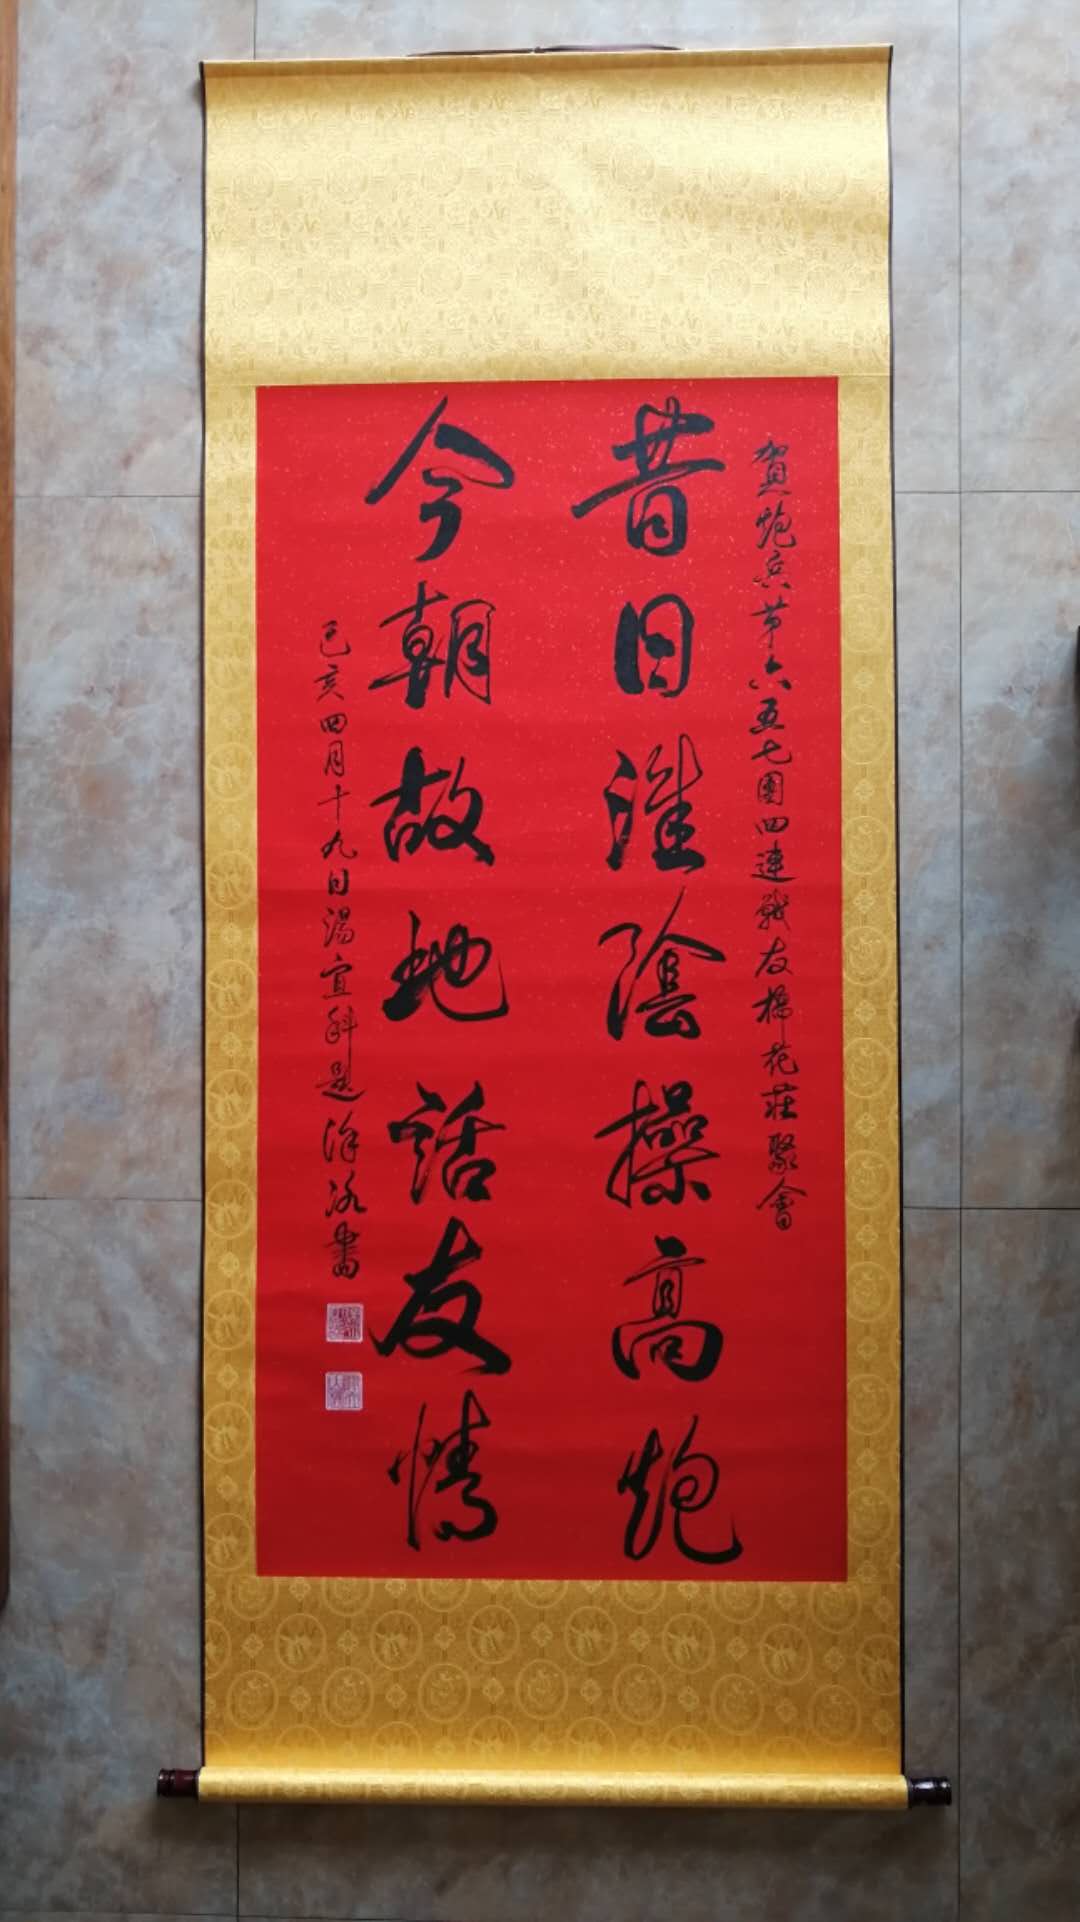 賀炮兵苐六五七團四連戰友棉花莊聚會
昔日淮陰操高炮
今朝故地話友情
己亥四月十九日湯宜科題 泳書